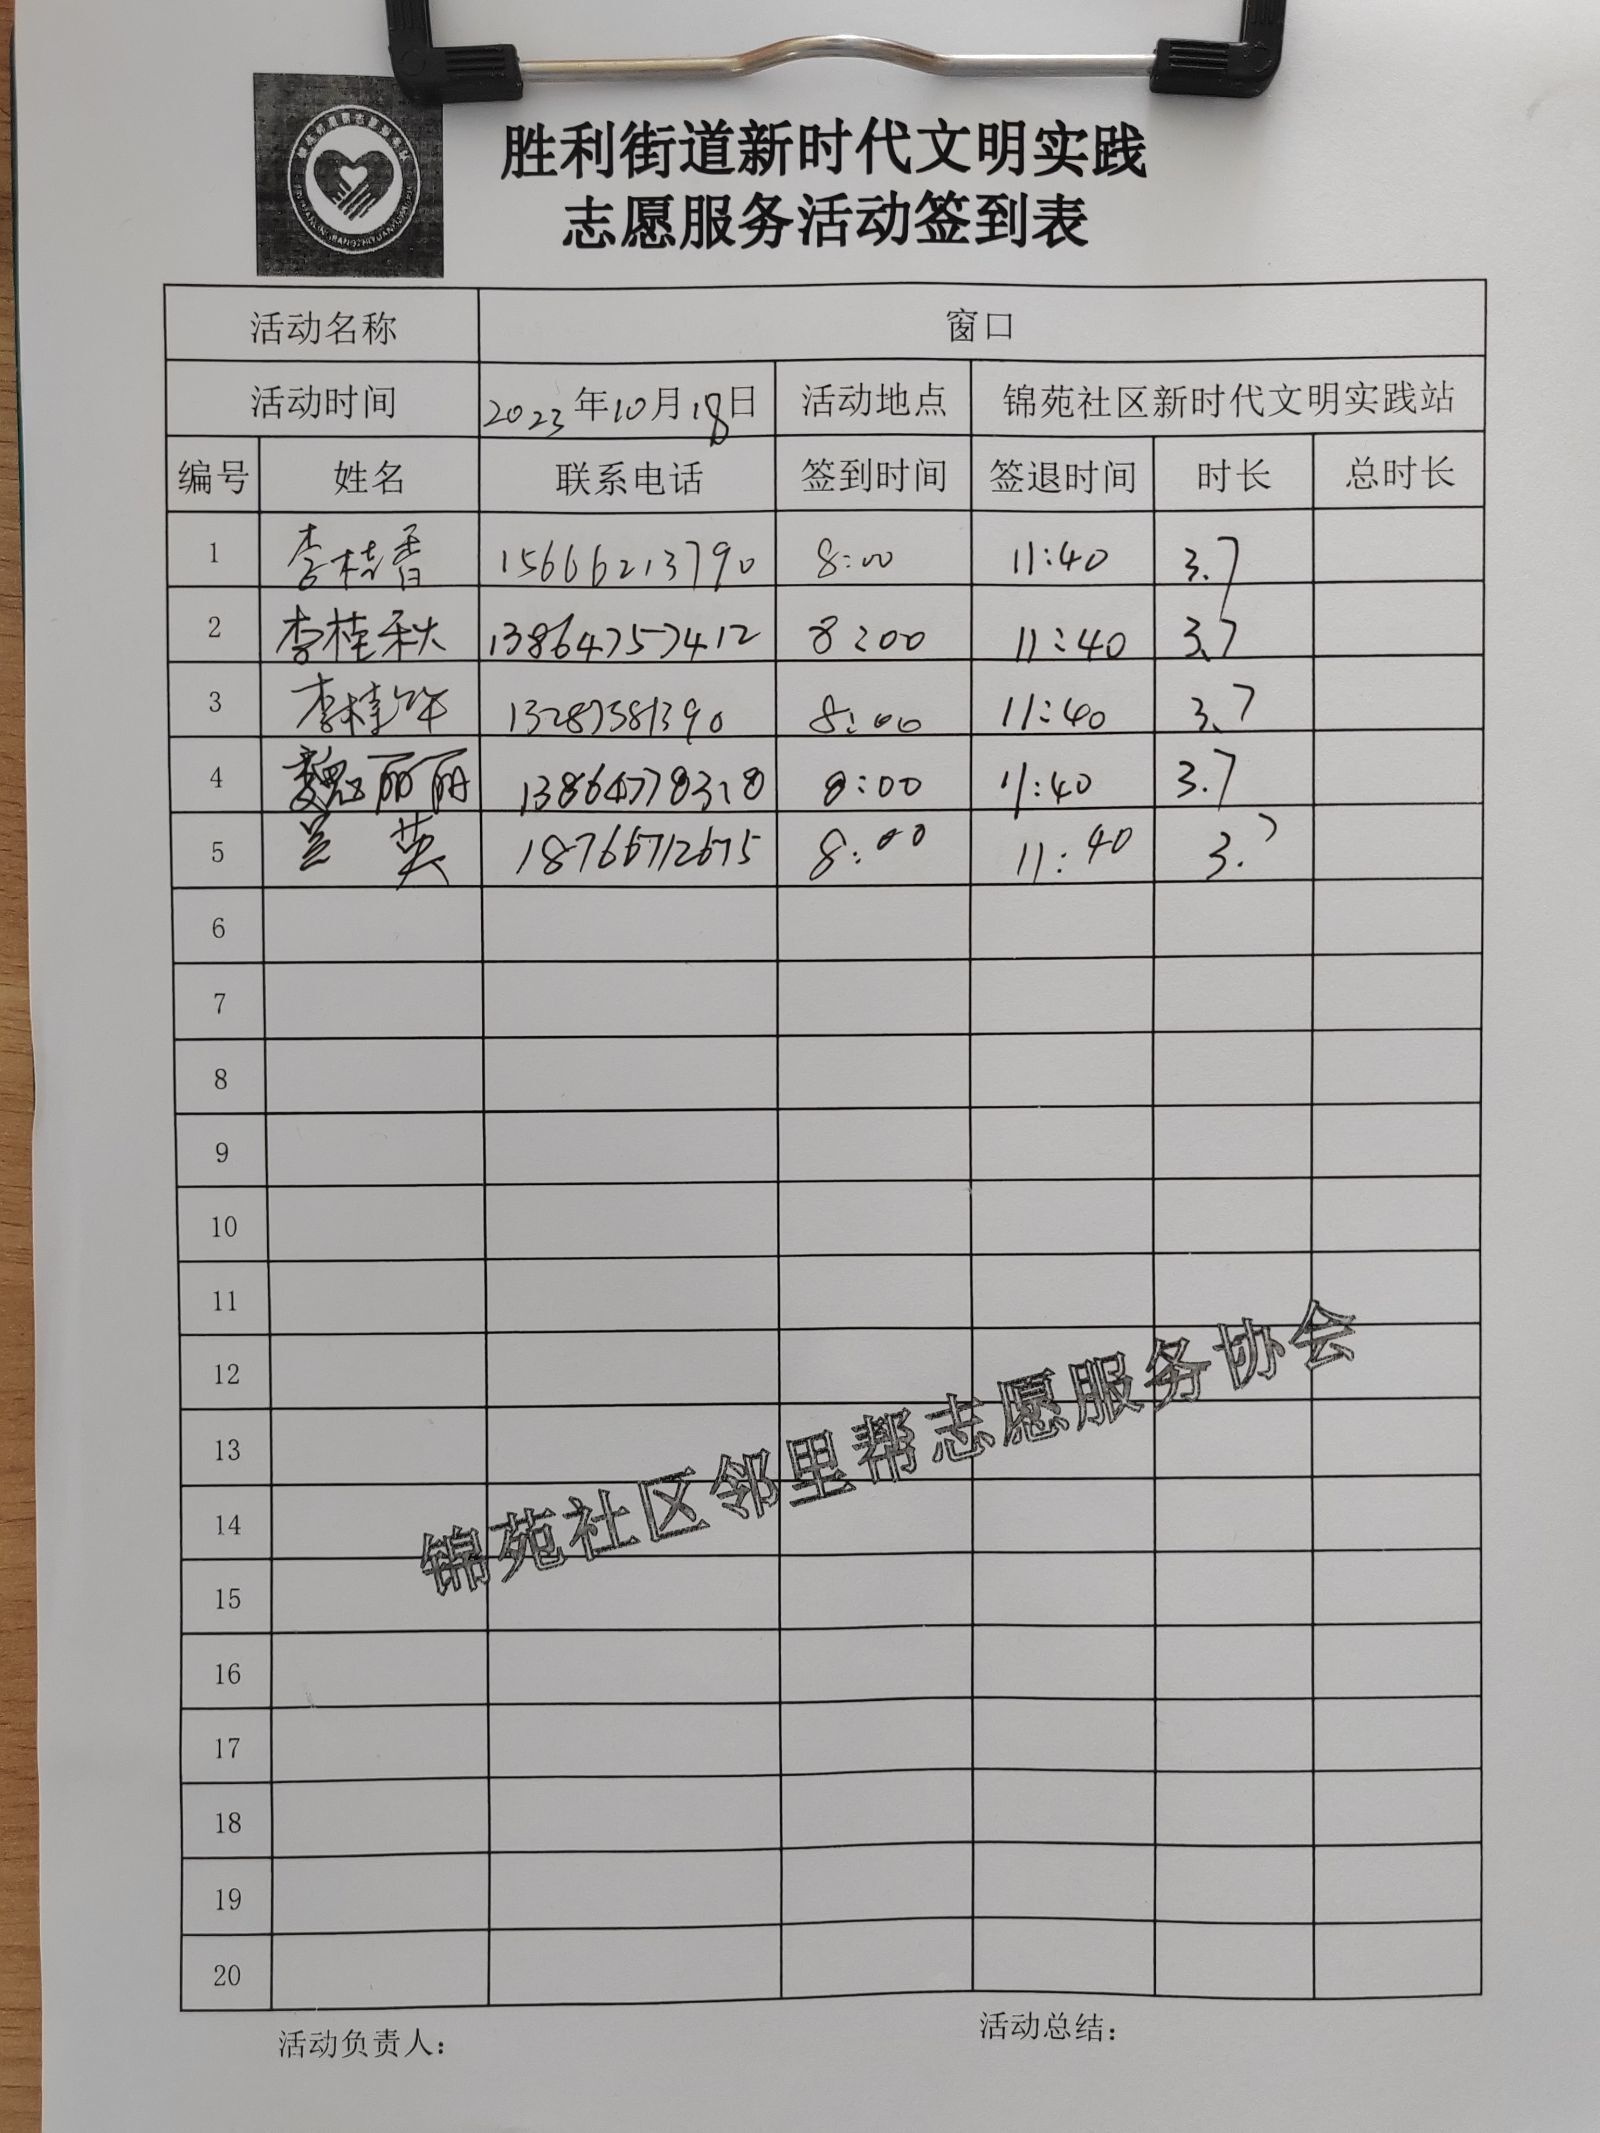 胜利街道新时代文明实践
志愿服务活动签到表
活动名称 窗口
活动时间 2023年10月18日 活动地点 锦苑社区新时代文明实践站
编号 姓名 联系电话 签到时间 签退时间 时长 总时长
1 李桂香 15666213790 8:00 11:40 3.7
2 李桂秋 13864757412 8:00 11:40 3.7
3 李桂华 13287381390 8:00 11:40 3.7
4 魏丽丽 13864778328 8:00 11:40 3.7
5 兰英 18766712675 8:00 11:40 3.7
6
7
8
9
10
11
12
13
14
15
16
17
18
19
20
锦苑社区邻里帮志愿服务协会
活动负责人: 活动总结: